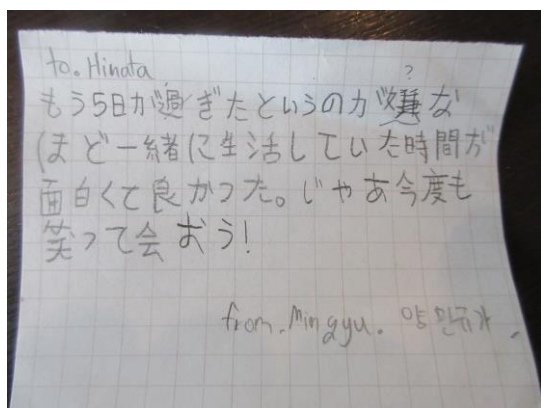 to. Hinata
?
もう5日が過ぎたというのが嫌な
ほど一緒に生活していた時間が
面白くて良かった。じゃあ今度も
笑って会おう!
from. Mingyu. 양민규가.